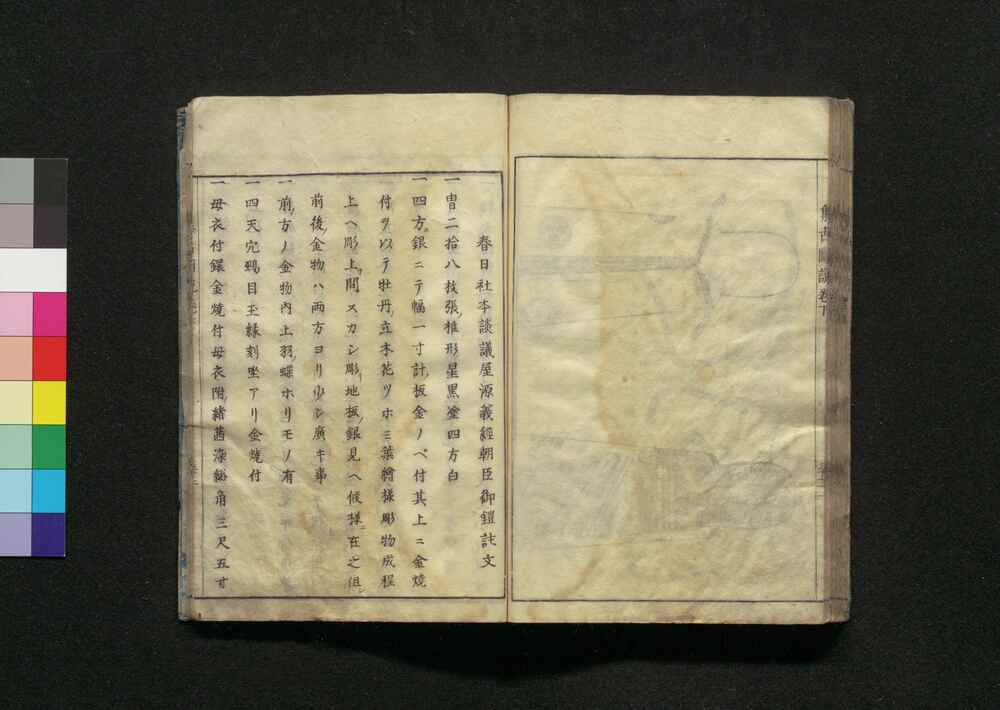 春日社本談議屋源義經朝臣御鎧註文
一冑二拾八枚張椎形星黒塗四方白
一四方銀ニテ幅一寸計板金ノベ付其上ニ金燒
付ヲ以テ牡丹立木花ツホミ葉繪樣彫物成程
上ヘ彫上間スカシ彫地板銀見ヘ候樣在之但
前後金物ハ両方ヨリ少シ廣キ事
一前方ノ金物内上羽蝶ホリモノ有
一四天穴鵐目玉縁刻座アリ金燒付
一母衣付鐶金燒付母衣附緒茜染絲角三尺五寸
集古圖說巻下